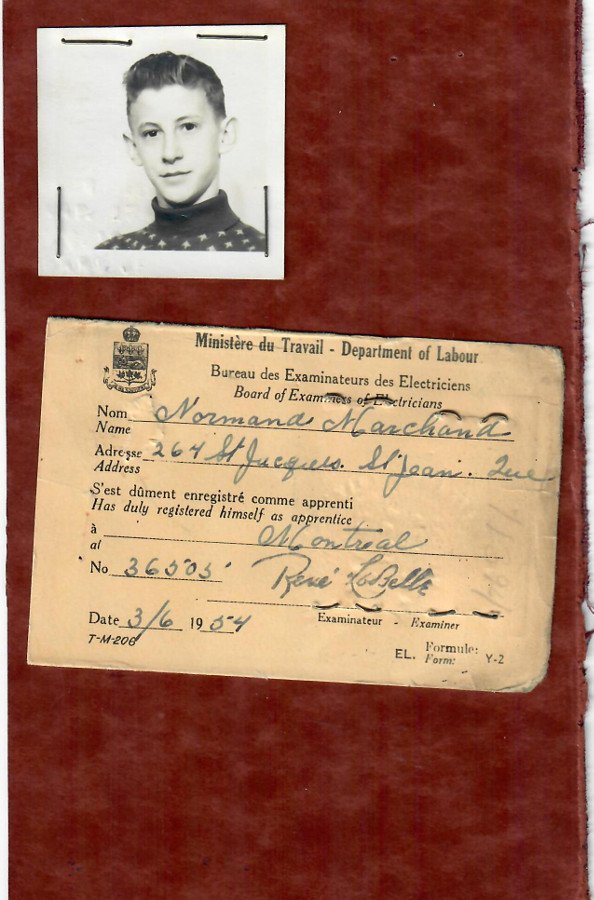 Ministère du Travail - Department of Labour
Bureau des Examinateurs des Electriciens
Board of Examiners of Electricians
Nom Normand Marchand
Name
Adresse 264 St Jacques. St Jean. Que
Address
S'est dûment enregistré comme apprenti
Has duly registered himself as apprentice
à Montreal
at
No 36505
René LaBelle
Date 3/6 1954 Examinateur - Examiner
T-M-206
EL. Formule: Y-2
Form: